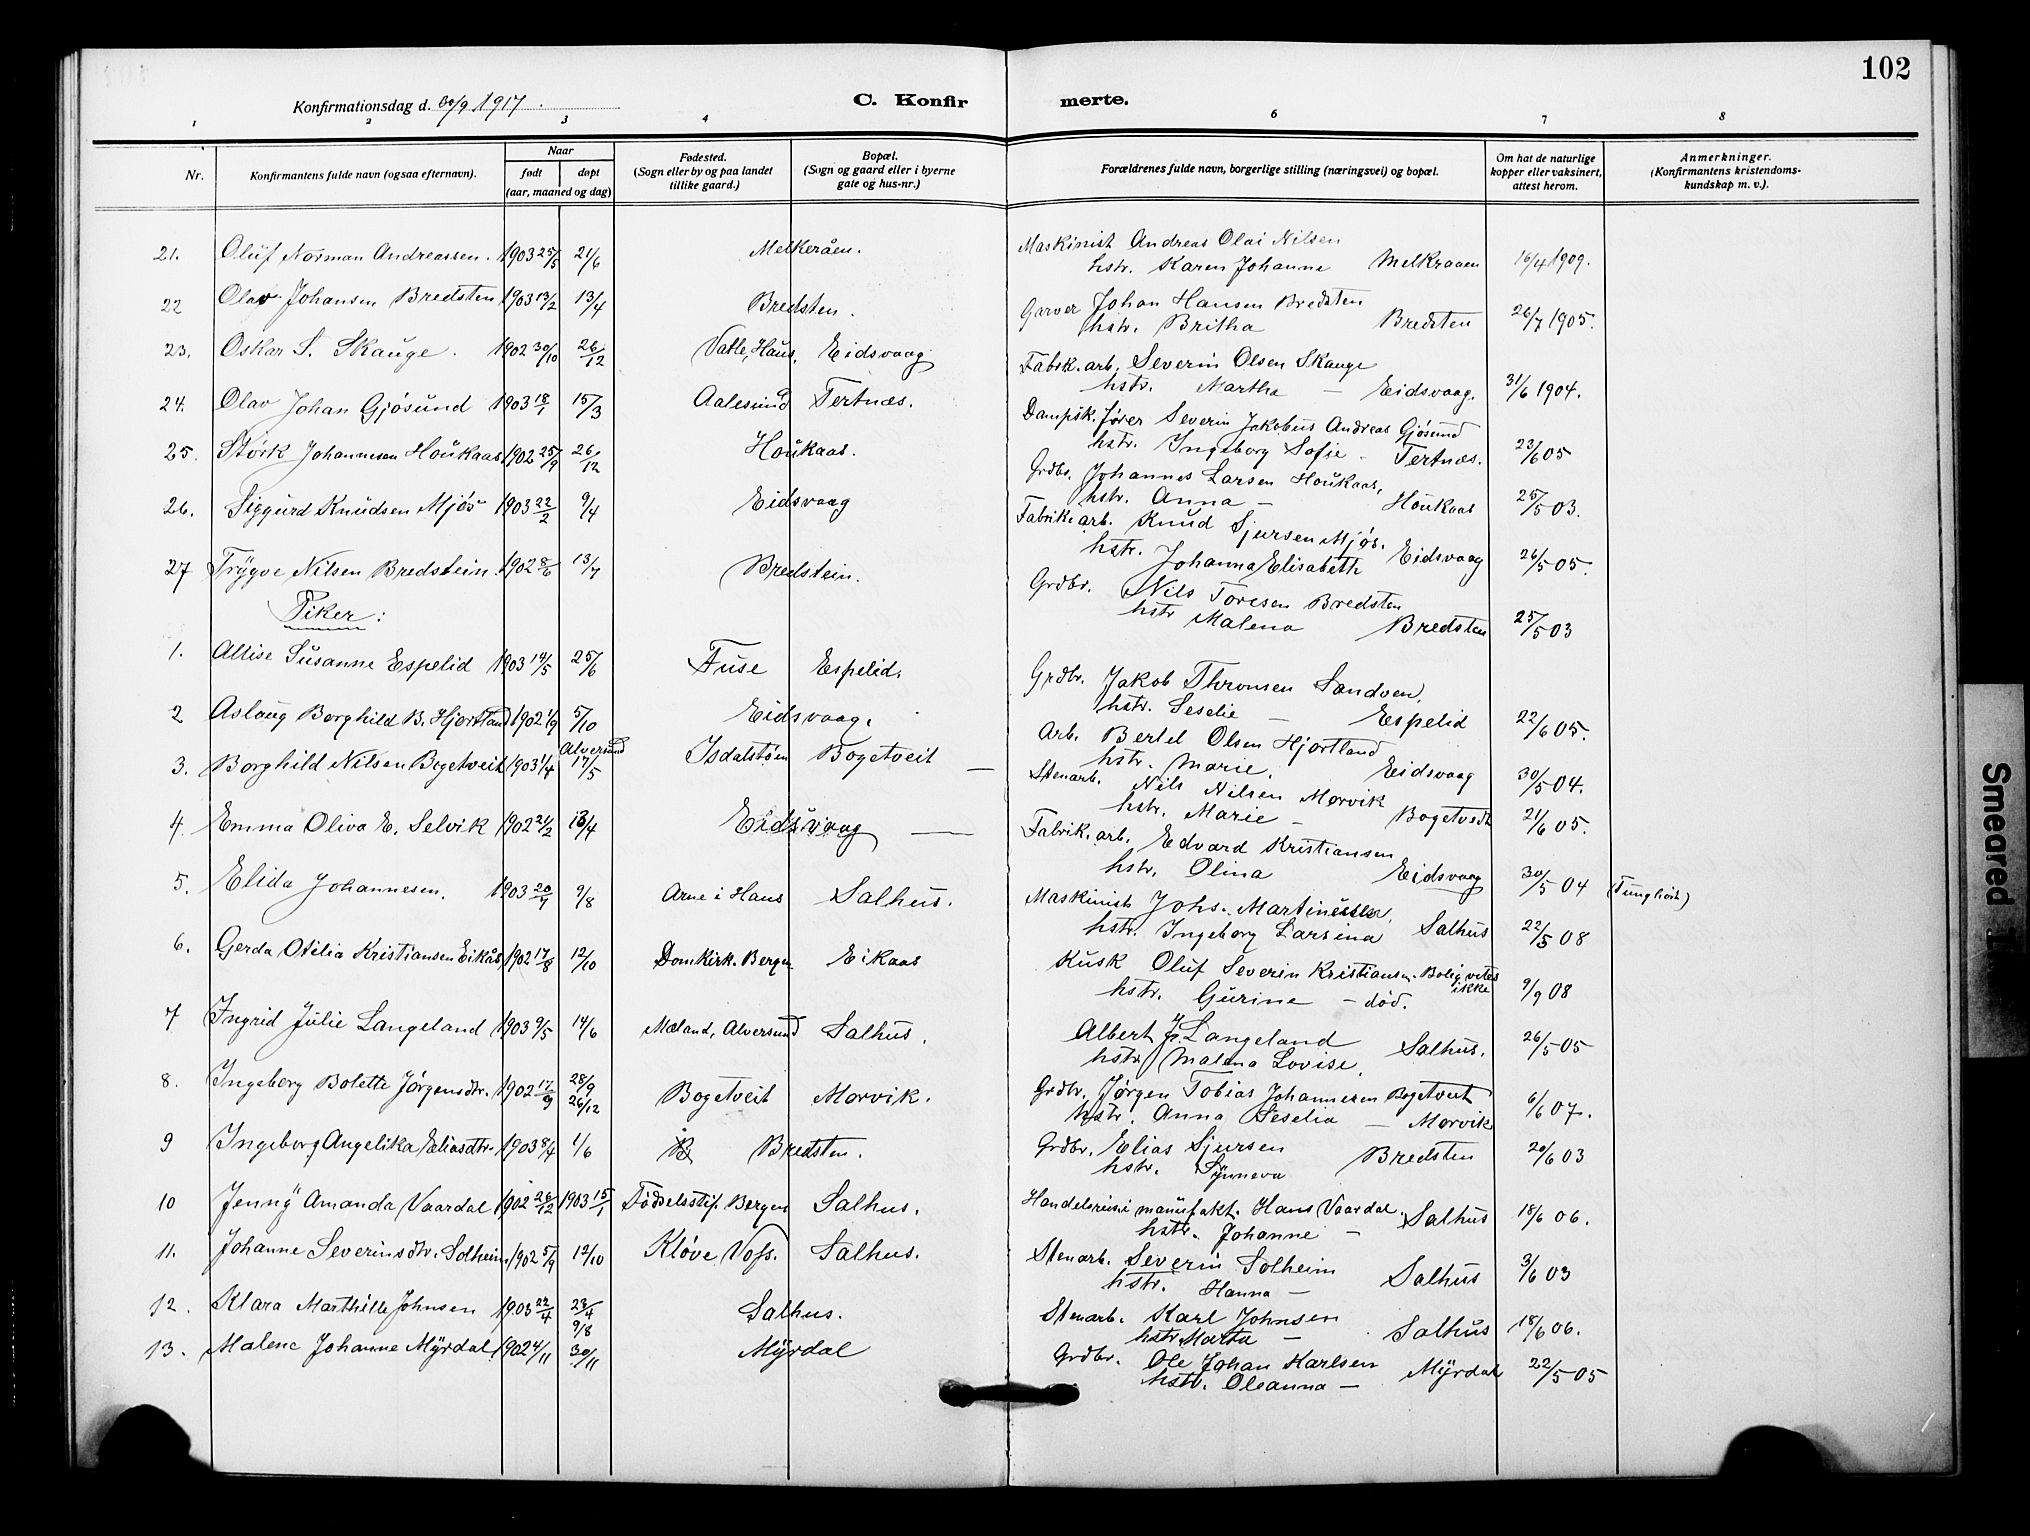 102
Konfirmationsdag d. 30/9 1917.
C. Konfirmerte.
1 2 3 4 6 7 8
Nr.
Konfirmantens fulde navn (ogsaa efternavn).
Naar
født døpt
(aar, maaned og dag)
Fødested.
(Sogn eller by og paa landet
tillike gaard.)
Bopæl.
(Sogn og gaard eller i byerne
gate og hus-nr.)
Forældrenes fulde navn, borgerlige stilling (næringsvei) og bopæl.
Om hat de naturlige
kopper eller vaksinert,
attest herom.
Anmerkninger.
(Konfirmantens kristendoms-
kundskap m. v.).
21. Oluf Norman Andreassen. 1903 25/5 21/6 Melkeråen. Maskinist Andreas Olai Nilsen
hstr. Karen Johanne Melkraaen 16/4 1909.
22 Olav Johansen Bredsten 1903 13/2 13/4 Bredsten. Garver Johan Hansen Bredsten
hstr. Britha Bredsten 26/7 1905.
23. Oskar S. Skauge. 1902 30/10 26/12 Valle, Haus. Eidsvaag Fabrk. arb. Severin Olsen Skauge
hstr. Martha — Eidsvaag. 31/6 1904.
24. Olav Johan Gjøsund 1903 18/1 15/3 Aalesund Tertnæs. Dampsk. fører Severin Jakobus Andreas Gjøsund
hstr. Ingeborg Sofie - Tertnæs. 23/6 05
25. Størk Johannesen Houkaas 1902 25/9 26/12 Houkaas. Grdbr. Johannes Larsen Houkaas,
hstr. Anna — Houkaas 25/5 03.
26. Siggurd Knudsen Mjøs 1903 22/2 9/4 Eidsvaag Fabrik. arb. Knud Sjursen Mjøs.
hstr. Johanna Elisabeth Eidsvaag 26/5 05.
27 Trygve Nilsen Bredstein. 1902 8/6 13/7 Bredstein. Grdbr. Nils Toresen Bredsten
hstr Malena Bredsten 25/5 03
Piker:
1. Altise Susanne Espelid 1903 14/5 25/6 Fuse Espelid. Grdbr. Jakob Thronsen Sandven,
hstr. Seselie — Espelid 22/6 05.
2 Aslaug Borghild B. Hjortland 1902 1/9 5/10 Eidsvaag. Arb. Bertel Olsen Hjortland
hstr. Marie. Eidsvaag 30/5 04.
3. Borghild Nilsen Bogetveit 1903 1/4 Alversund 17/5 Isdalstøen Bogetveit — Stenarb. Nils Nilsen Morvik
hstr. Marie — Bogetvedt 21/6 05.
4. Emma Oliva E. Selvik 1902 21/2 13/4 Eidsvaag — Fabrik. arb. Edvard Kristiansen
hstr. Olina Eidsvaag 30/5 04 (Tunghørt)
5. Elida Johannesen. 1903 20/4 9/8 Arne i Haus Salhus. Maskinist Johs. Martinussen,
hstr. Ingeborg Larsina Salhus 22/5 08
6. Gerda Otilia Kristiansen Eikås 1902 17/8 12/10 Domkirk. Bergen Eikaas Kusk Oluf Severin Kristiansen. Bolig vites ikke
hstr. Gurine — død. 9/9 08
7 Ingrid Julie Langeland 1903 9/5 14/6 Mæland, Alversund Salhus. Albert J. Langeland
hstr. Malena Lovise, Salhus. 26/5 05
8. Ingeborg Bolette Jørgensdtr. 1902 17/9 28/9 26/12 Bogetveit Morvik. Grdbr. Jørgen Tobias Johannesen Bogetveit
hstr. Anna Seselia — Morvik 6/6 07.
9 Ingeborg Angelika Eliasdtr. 1903 8/4 1/6 Bredsten. Grdbr. Elias Sjursen
hstr. Synneva Bredsten 20/6 03
10 Jenny Amanda Vaardal 1902 26/12 1903 15/1 Fødselsstif. Bergen Salhus. Handelsreis. i manufakt. Hans Vaardal.
hstr. Johanne — Salhus 18/6 06.
11. Johanne Severinsdtr. Solheim 1902 5/9 12/10 Kløve Voss. Salhus. Stenarb. Severin Solheim
hstr. Hanna — Salhus 3/6 03
12. Klara Marthille Johnsen 1903 22/4 23/4 9/8 Salhus. Stenarb. Karl Johnsen
hstr. Marta — Salhus 18/6 06.
13. Malene Johanne Myrdal 1902 4/11 30/11 Myrdal Grdbr. Ole Johan Karlsen
hstr. Oleanna — Myrdal 22/5 05
Smeared